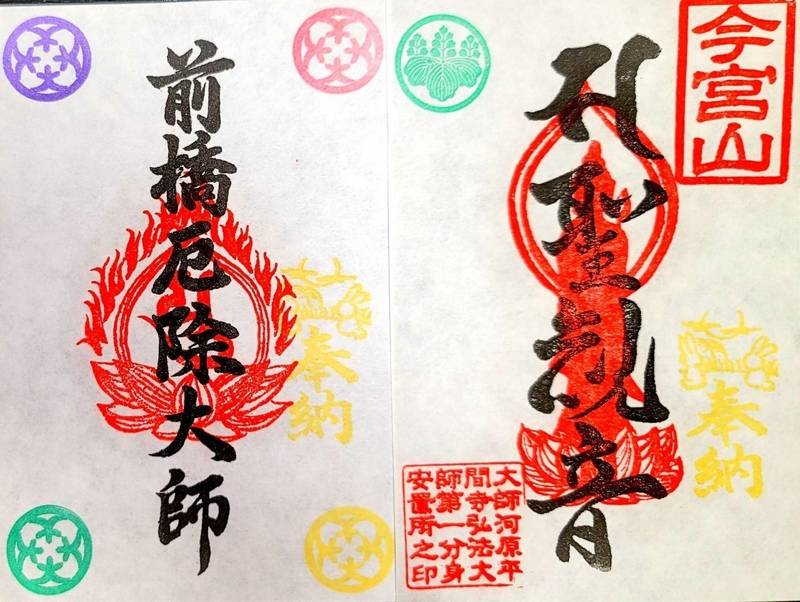 前橋厄除大師
奉納
今宮山
聖観音
奉納
大師河原平
間寺弘法大
師第一分身
安置所之印